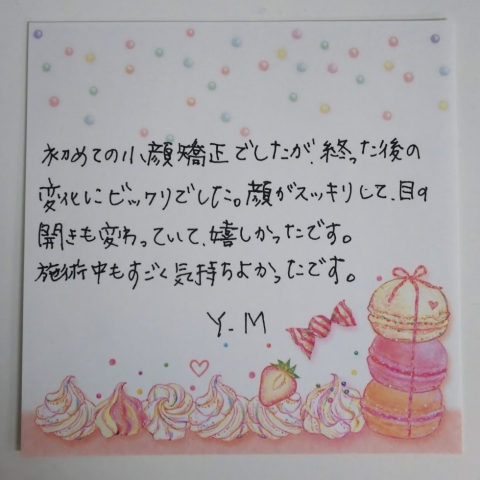 初めての小顔矯正でしたが、終った後の
変化にビックリでした。顔がスッキリして、目の
開きも変わっていて、嬉しかったです。
施術中もすごく気持ちよかったです。
Y.M